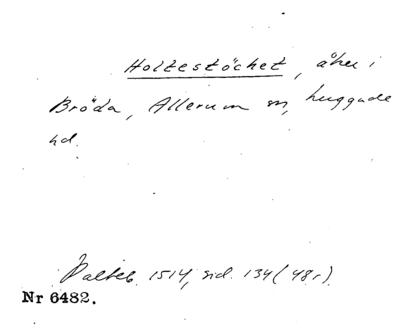 Holtestöcket, åker i
Bröda, Allerum sn, Luggude
hd.
Palteb. 1514, sid. 134 (48r).
Nr 6482.